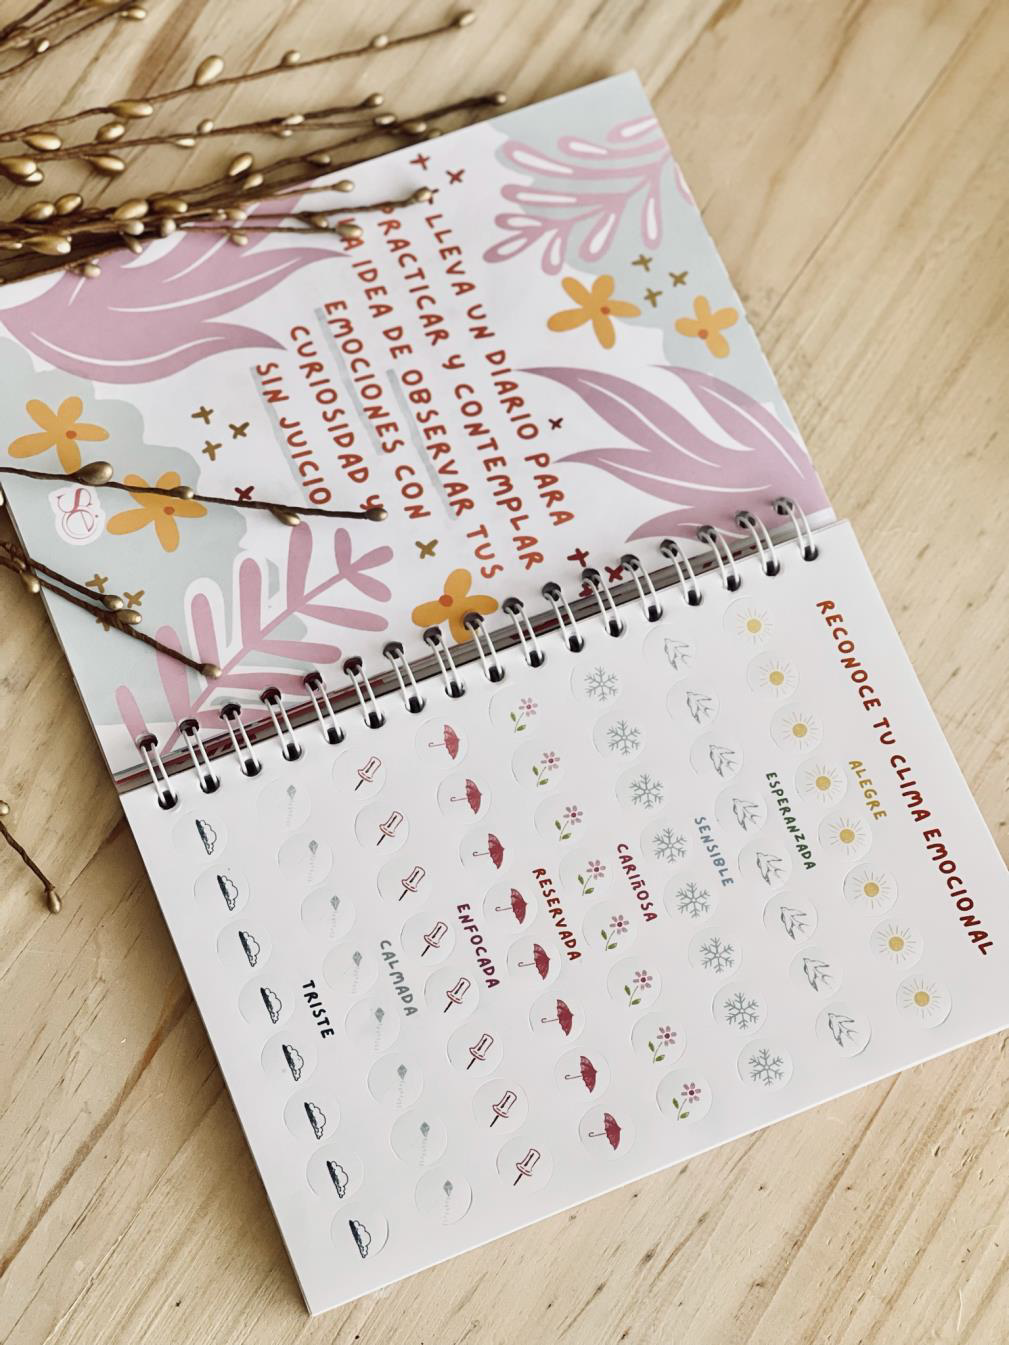 LLEVA UN DIARIO PARA
PRACTICAR Y CONTEMPLAR
LA IDEA DE OBSERVAR TUS
EMOCIONES CON
CURIOSIDAD Y
SIN JUICIO
RECONOCE TU CLIMA EMOCIONAL
ALEGRE
ESPERANZADA
SENSIBLE
CARIÑOSA
RESERVADA
ENFOCADA
CALMADA
TRISTE